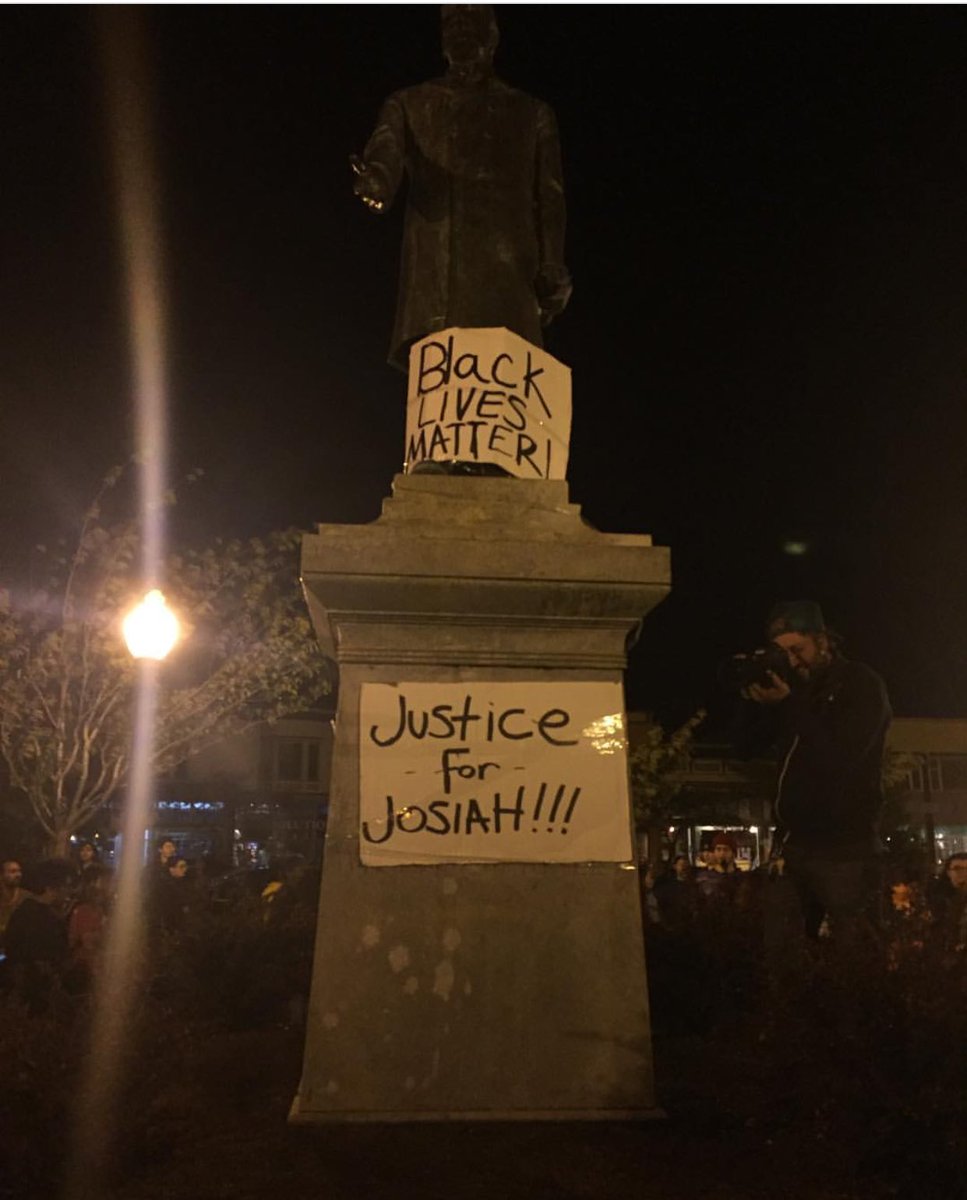 Black
LIVES
MATTER!
Justice
- for -
JOSIAH!!!